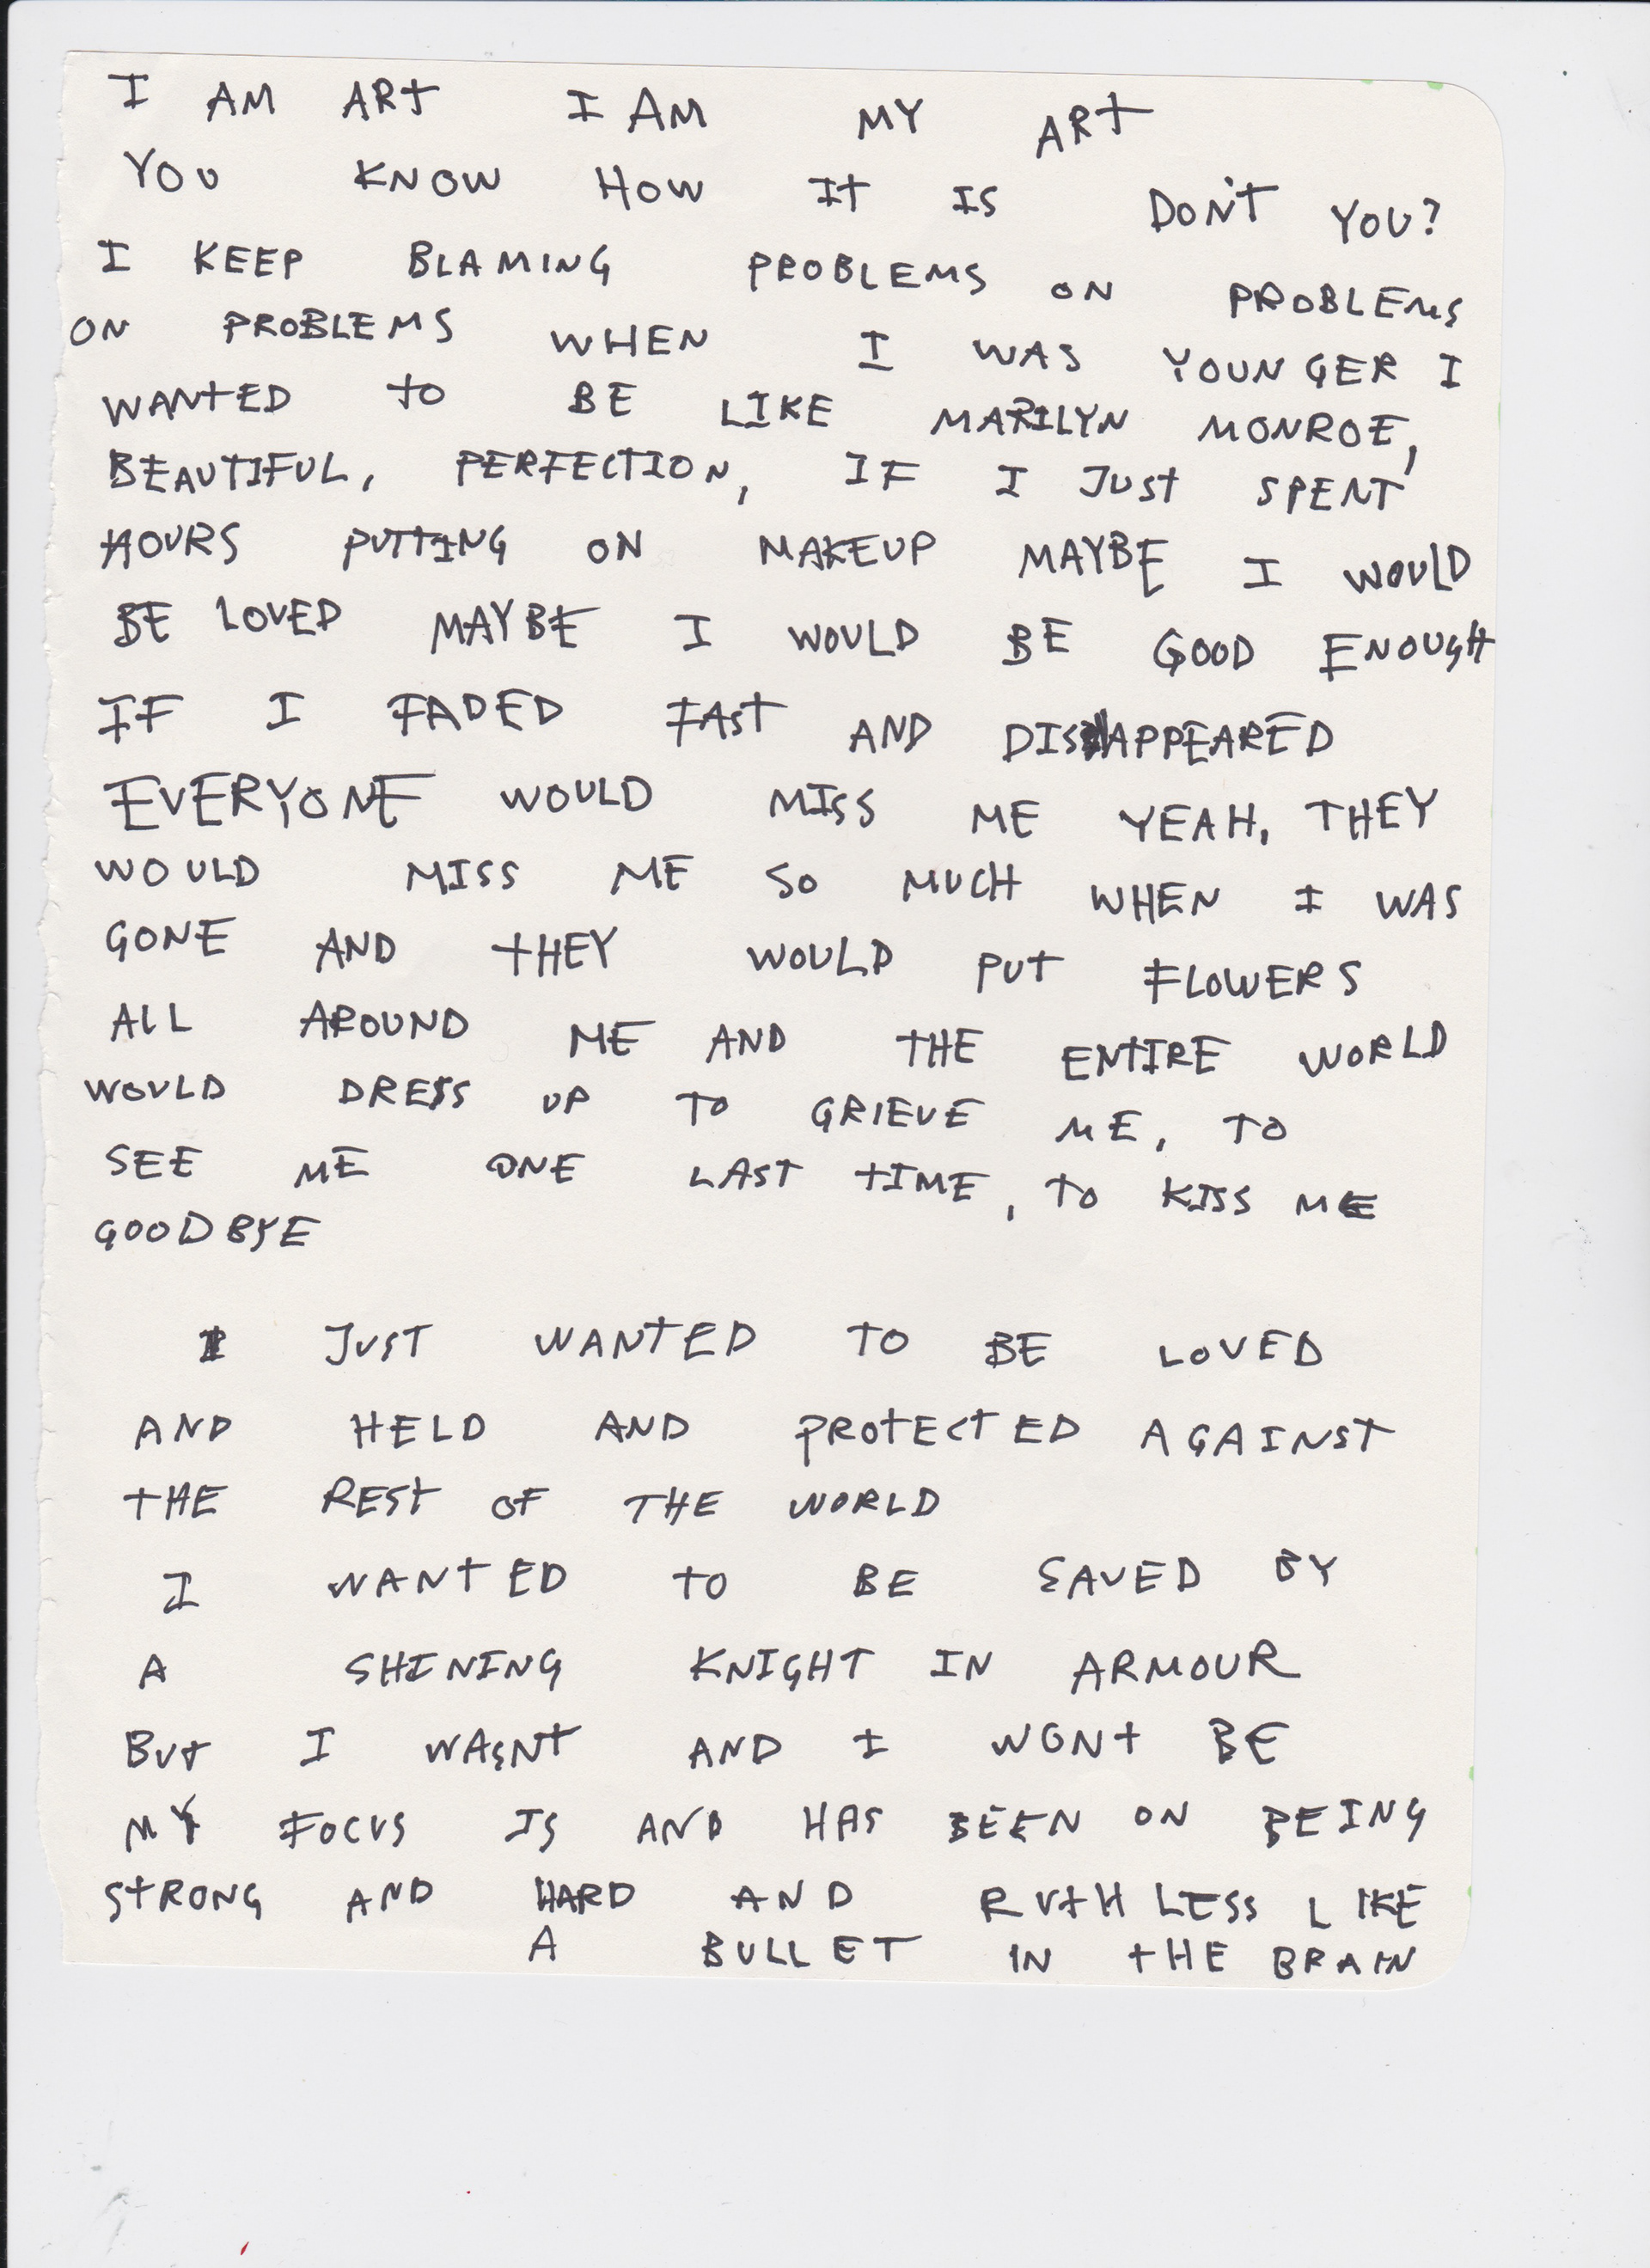 I AM ART I AM MY ART
YOU KNOW HOW IT IS DON'T YOU?
I KEEP BLAMING PROBLEMS ON PROBLEMS
ON PROBLEMS WHEN I WAS YOUNGER I
WANTED TO BE LIKE MARILYN MONROE,
BEAUTIFUL, PERFECTION, IF I JUST SPENT
HOURS PUTTING ON MAKEUP MAYBE I WOULD
BE LOVED MAYBE I WOULD BE GOOD ENOUGH
IF I FADED FAST AND DISAPPEARED
EVERYONE WOULD MISS ME YEAH, THEY
WOULD MISS ME SO MUCH WHEN I WAS
GONE AND THEY WOULD PUT FLOWERS
ALL AROUND ME AND THE ENTIRE WORLD
WOULD DRESS UP TO GRIEVE ME, TO
SEE ME ONE LAST TIME, TO KISS ME
GOODBYE
I JUST WANTED TO BE LOVED
AND HELD AND PROTECTED AGAINST
THE REST OF THE WORLD
I WANTED TO BE SAVED BY
A SHINING KNIGHT IN ARMOUR
BUT I WASNT AND I WONT BE
MY FOCUS IS AND HAS BEEN ON BEING
STRONG AND HARD AND RUTHLESS LIKE
A BULLET IN THE BRAIN